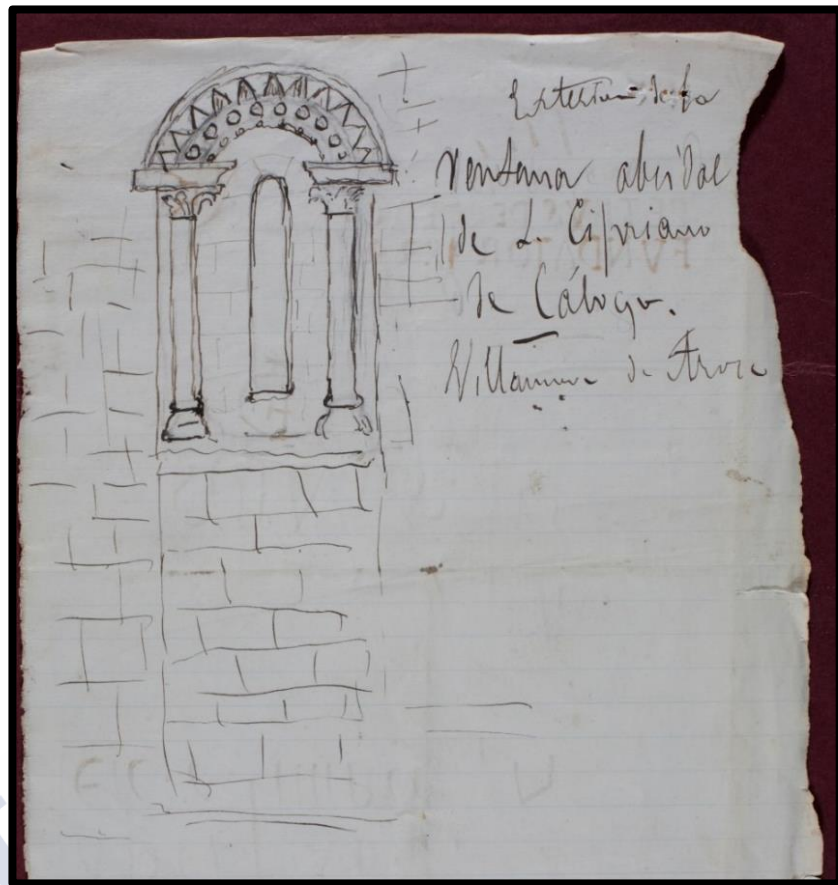 Exterior de la
ventana absidal
de S. Cipriano
de Cálogo.
Villanueva de Arosa